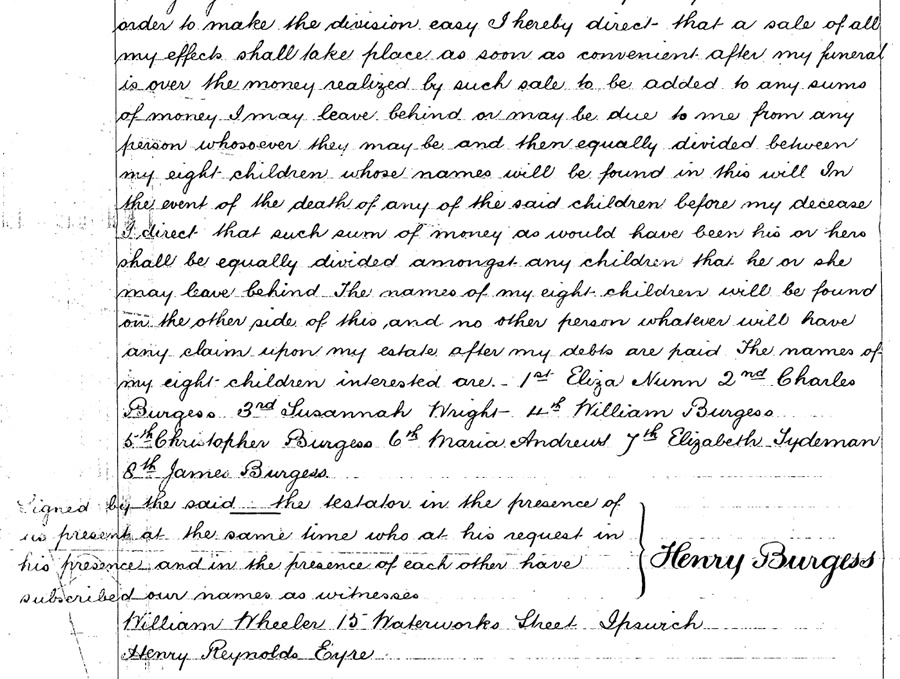 order to make the division easy I hereby direct that a sale of all
my effects shall take place as soon as convenient after my funeral
is over the money realized by such sale to be added to any sums
of money I may leave behind or may be due to me from any
person whosoever they may be and then equally divided between
my eight children whose names will be found in this will In
the event of the death of any of the said children before my decease
I direct that such sum of money as would have been his or hers
shall be equally divided amongst any children that he or she
may leave behind The names of my eight children will be found
on the other side of this and no other person whatever will have
any claim upon my estate after my debts are paid The names of
my eight children interested are - 1st Eliza Nunn 2nd Charles
Burgess 3rd Susannah Wright 4th William Burgess
5th Christopher Burgess 6th Maria Andrews 7th Elizabeth Tydeman
8th James Burgess
Signed by the said __ the testator in the presence of
us present at the same time who at his request in
his presence and in the presence of each other have
subscribed our names as witnesses
Henry Burgess
William Wheeler 15 Waterworks Street Ipswich
Henry Reynolds Eyre